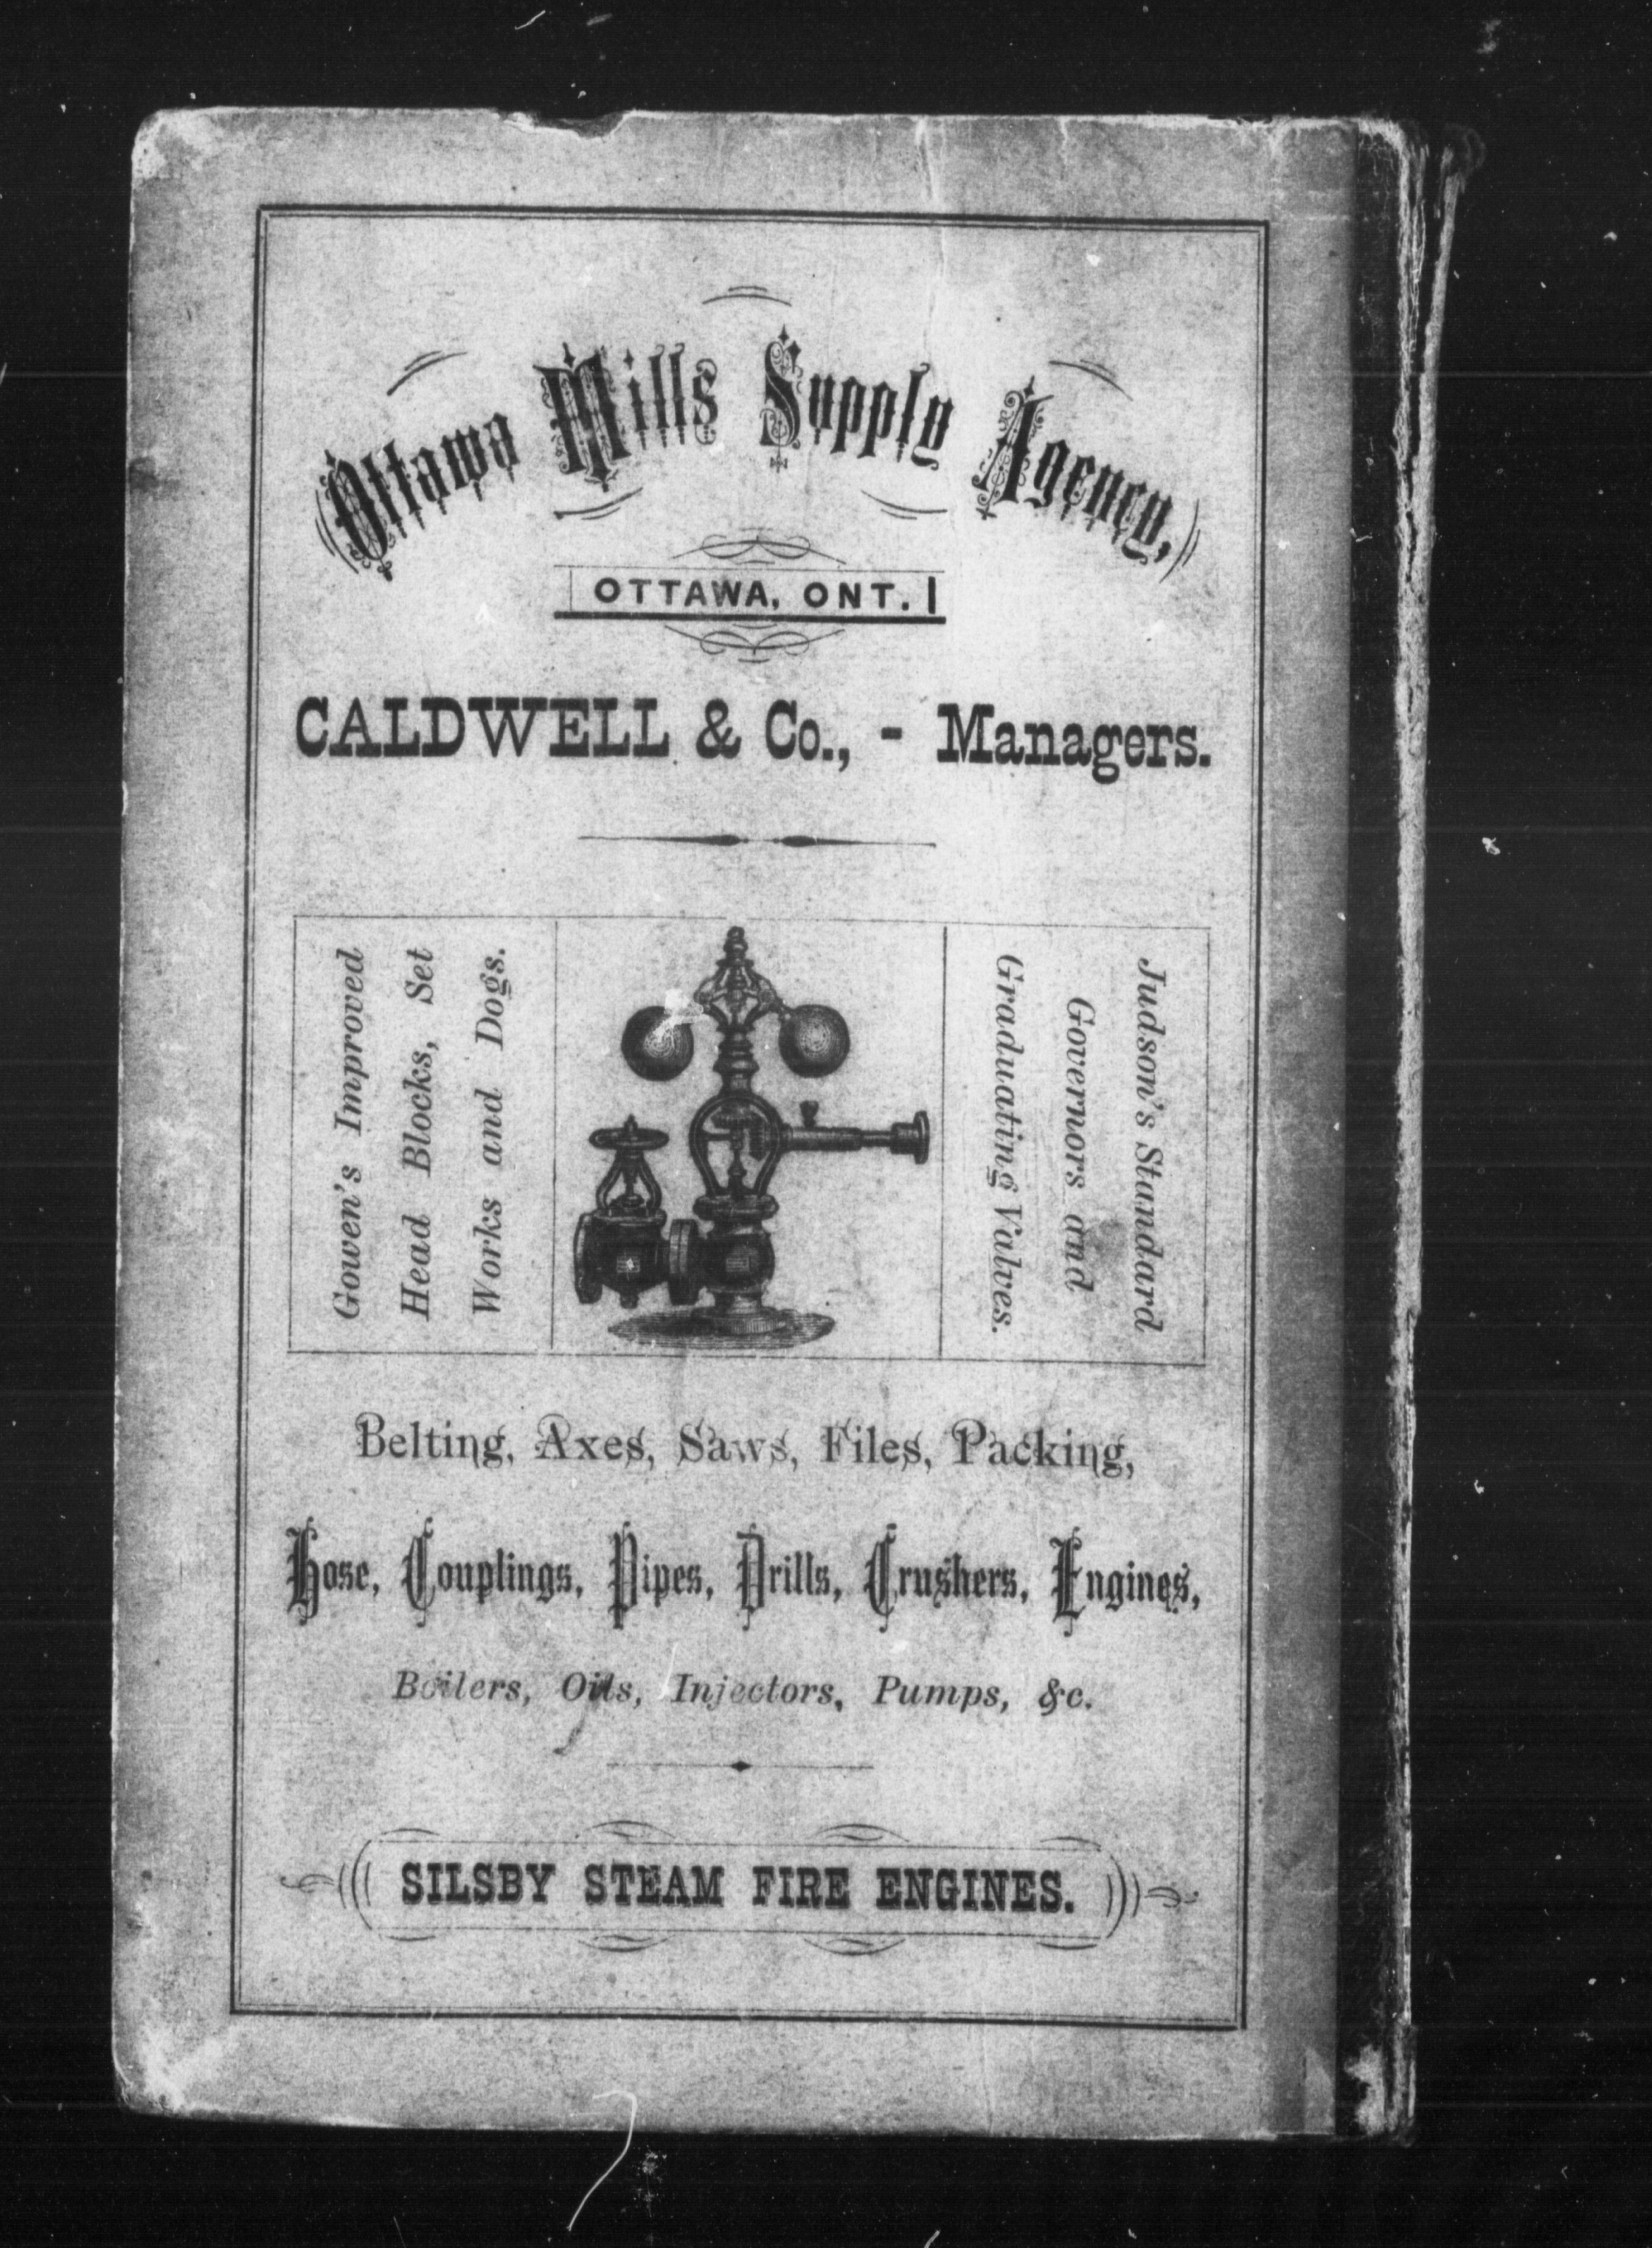 Ottawa Mills Supply Agency,
OTTAWA, ONT.
CALDWELL & Co., - Managers.
Gowen's Improved
Head Blocks, Set
Works and Dogs.
Judson's Standard
Governors and
Graduating Valves.
Belting, Axes, Saws, Files, Packing,
Hose, Couplings, Pipes, Drills, Crushers, Engines,
Boilers, Oils, Injectors, Pumps, &c.
SILSBY STEAM FIRE ENGINES.